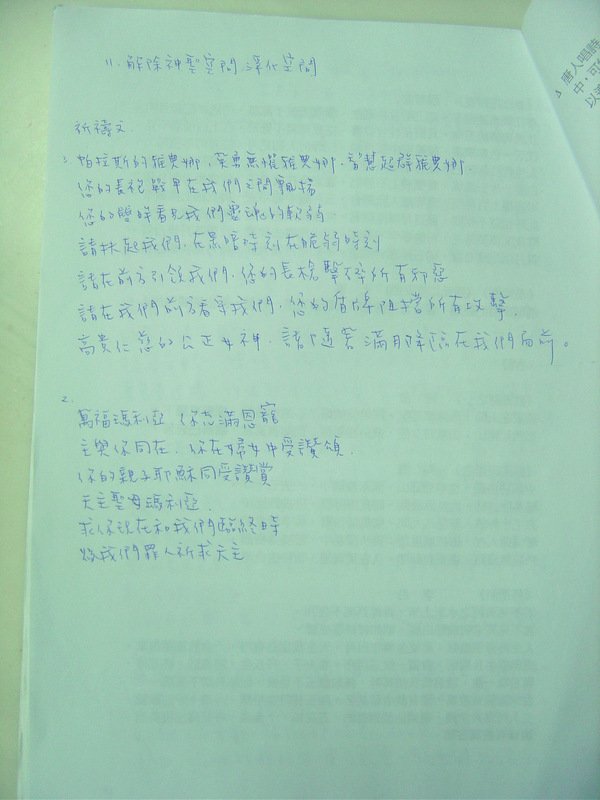 11. 解除神聖空間、淨化空間
祈禱文
1. 帕拉斯的雅典娜，英勇無懼雅典娜，智慧超群雅典娜.
您的長袍戰旱在我們之間飄揚
您的雙眸看見我們靈魂的軟弱
請扶起我們，在黑暗時刻在脆弱時刻
請在前方引領我們，您的長槍擊碎所有邪惡
請在我們前方看守我們，您的盾牌阻擋所有攻擊.
高貴仁慈的公正女神，請隨著滿月降臨在我們面前。
2.
萬福瑪利亞，你充滿恩寵
主與你同在，你在婦女中受讚頌.
你的親子耶穌同受讚賞
天主聖母瑪利亞.
求你現在和我們臨終時
為我們罪人祈求天主
唐人唱詩
中，可
以